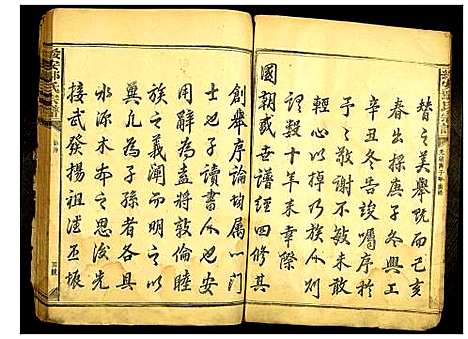 替之美舉既而己亥
春出探庚子冬興工
辛丑冬告竣囑序於
予予敢謝不敏未敢
輕心以掉乃族人則
謹歷十年未幸際
國朝咸世譜經四修其
創舉序論均屬一門
士也子讀書人也安
用辭為盍將敦倫睦
族之義闡而發之
冀凡為子孫者各具
水源木本之思後先
接武發揚祖德丕振